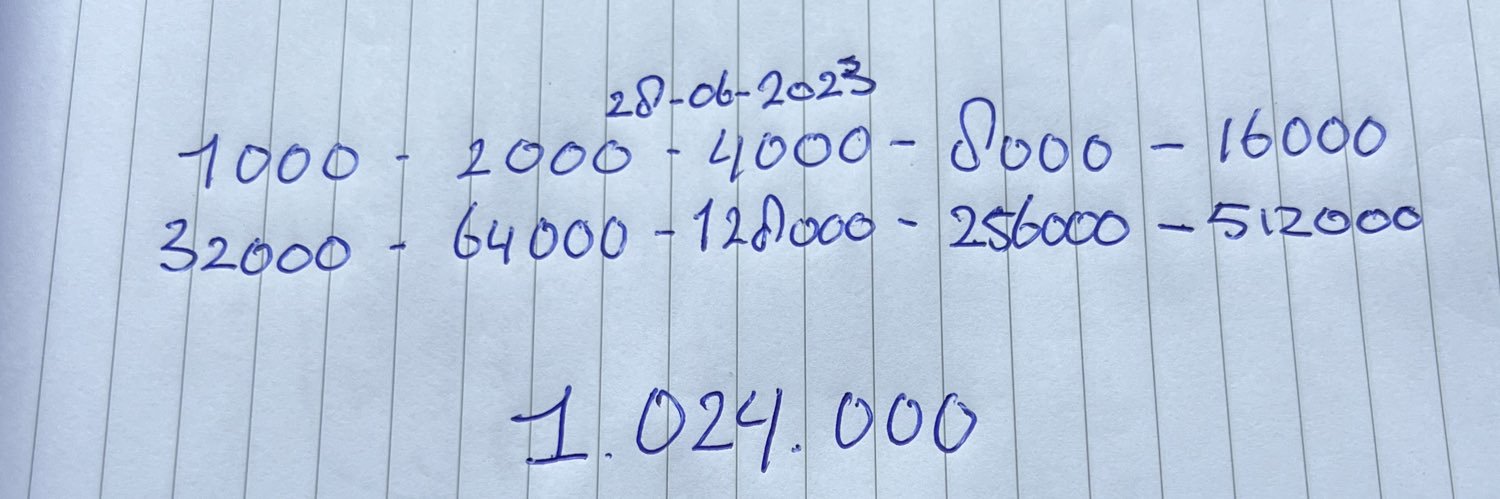 28-06-2023
1000 - 2000 - 4000 - 8000 - 16000
32000 - 64000 - 128000 - 256000 - 512000
1.024.000